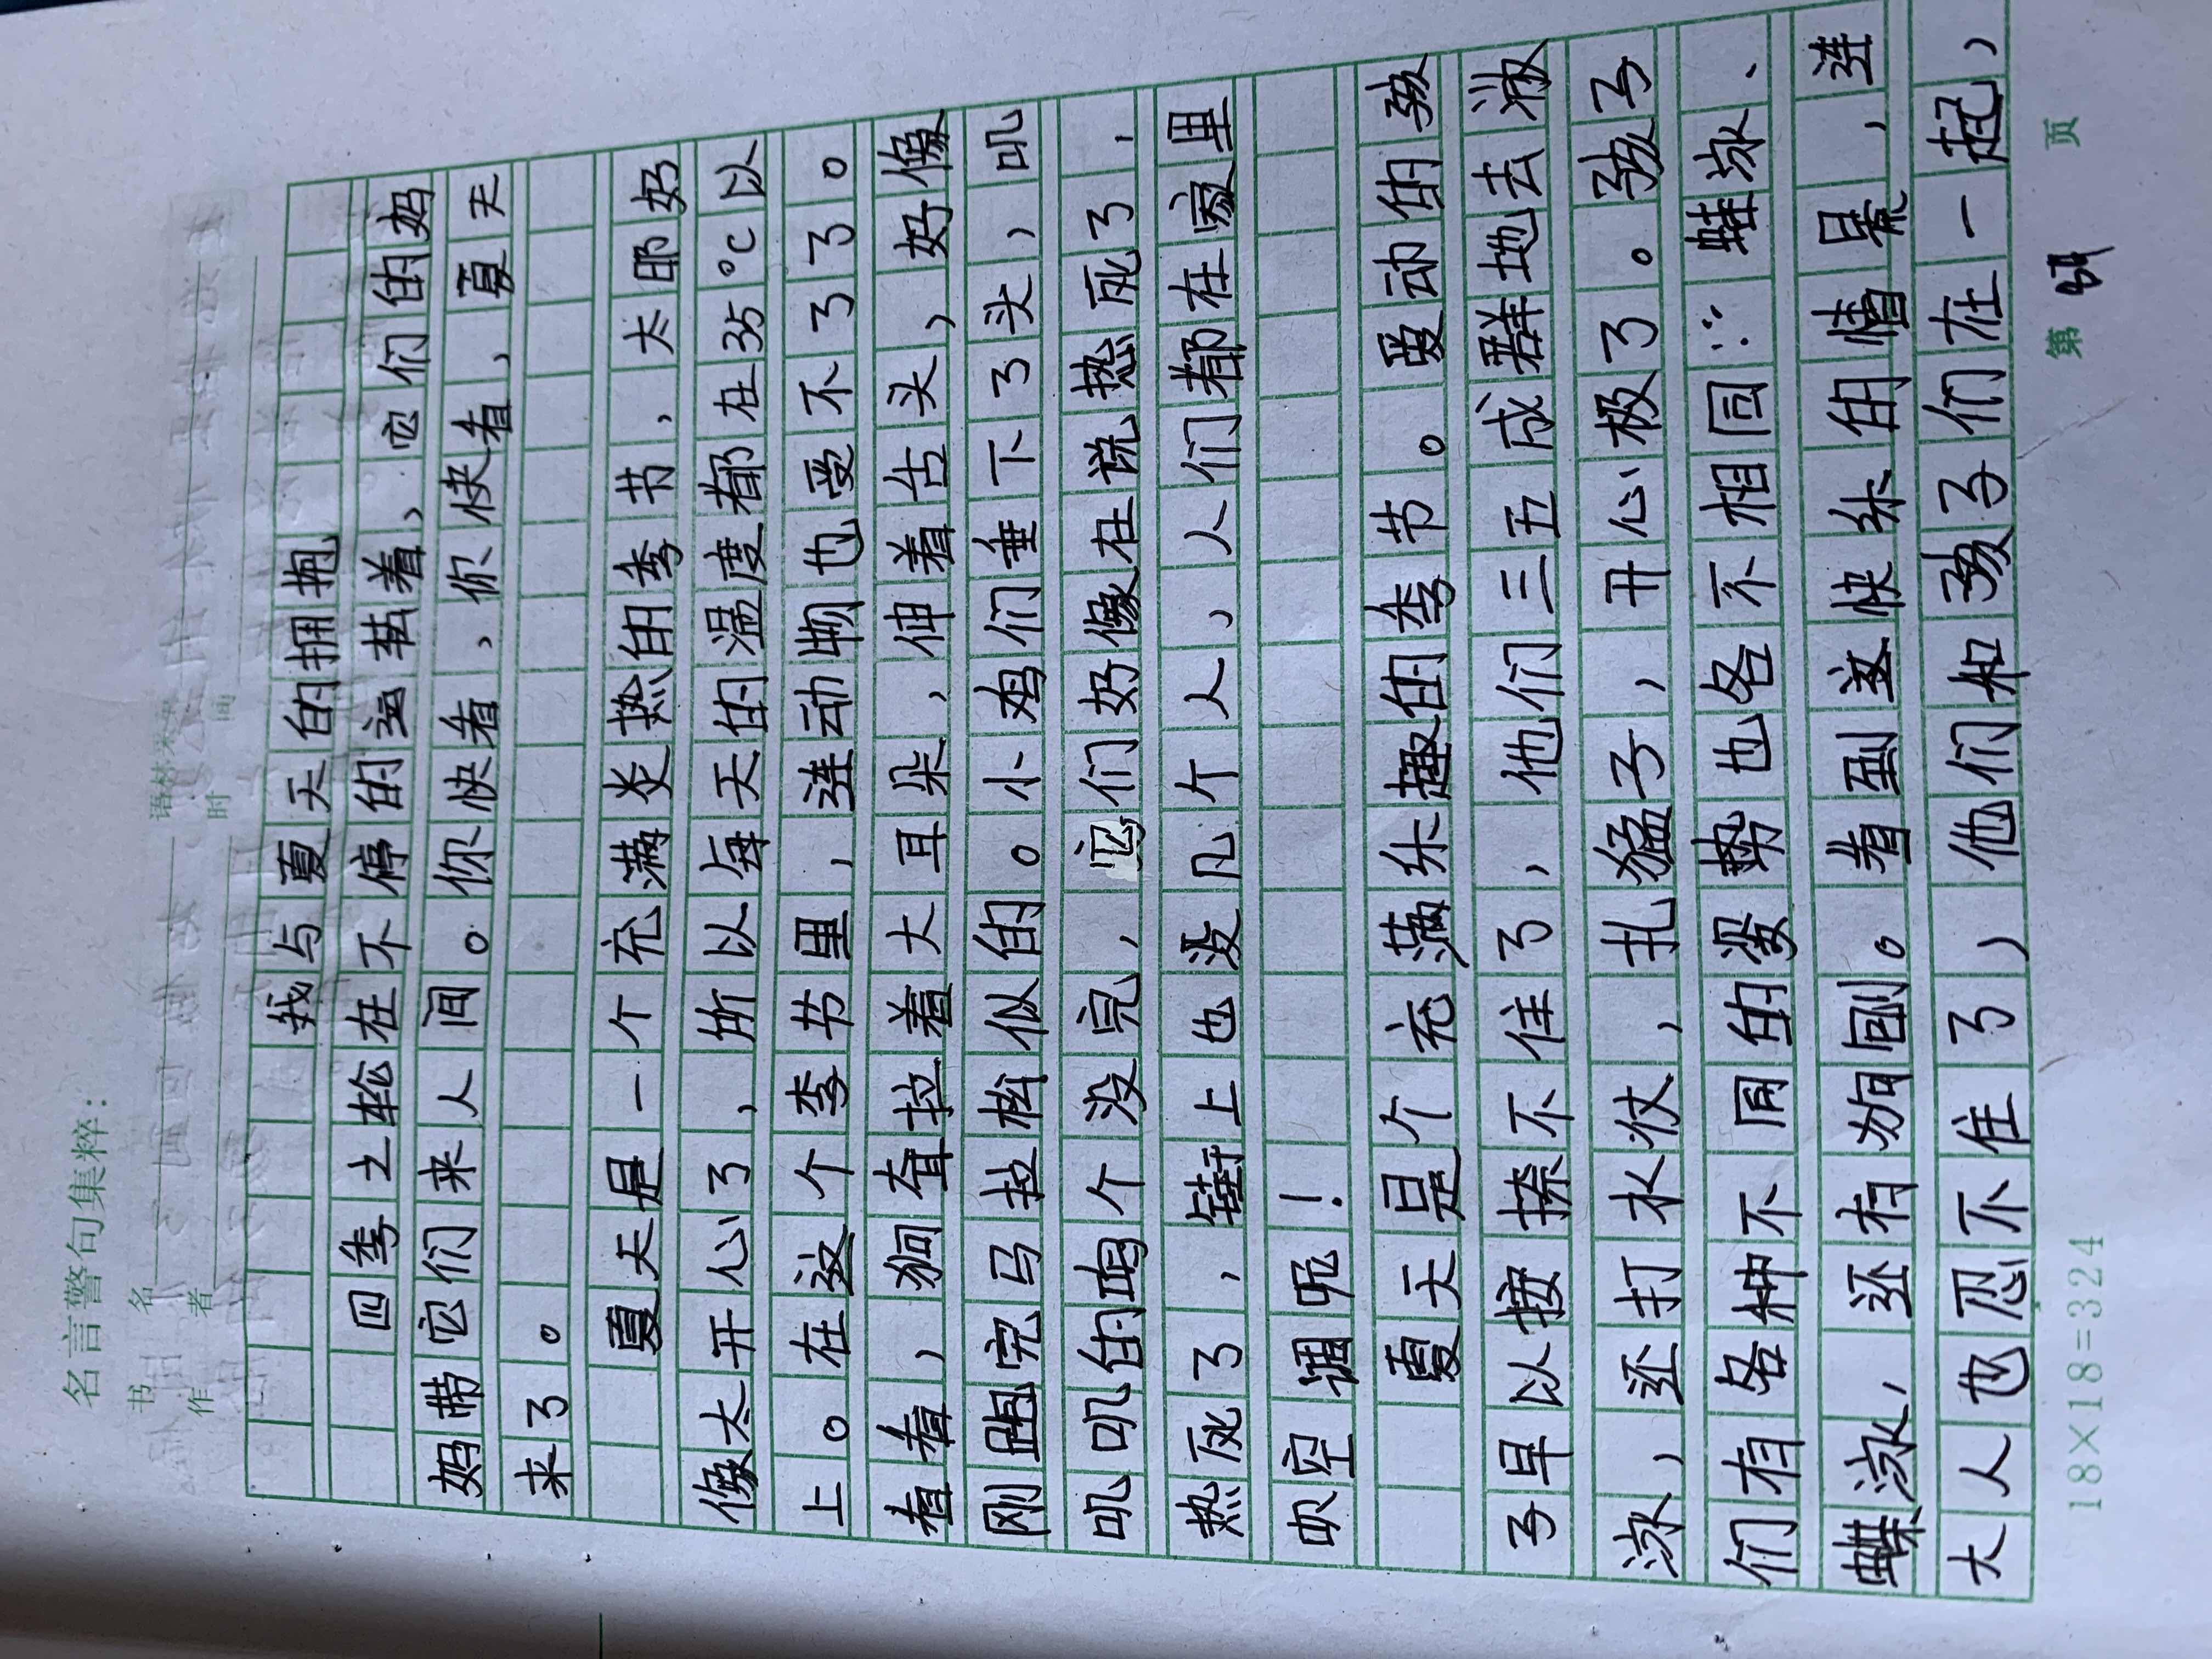 名言警句集粹：
书名
语林采英
作者
时间
我与夏天的拥抱
四季之轮在不停的运转着，它们的妈
妈带它们来人间。你快看，你快看，夏天
来了。
夏天是一个充满炎热的季节，太耶奶
像太开心了，所以每天的温度都在35℃以
上。在这个季节里，连动物也受不了了。
看看，狗耷拉着大耳朵，伸着舌头，好像
刚跑完马拉松似的。小鸡们垂下了头，叽
叽叽的鸣个没完，它们好像在说热死了，
热死了，街上也没几个人，人们都在家里
吹空调呢！
夏天是个充满乐趣的季节。爱动的孩
子早以按捺不住了，他们三五成群地去游
泳，还打水仗，扎猛子，开心极了。孩子
们有各种不同的姿势也各不相同：蛙泳、
蝶泳，还有狗刨。看到这快乐的情景，连
大人也忍不住了，他们和孩子们在一起，
18×18=324
第 页